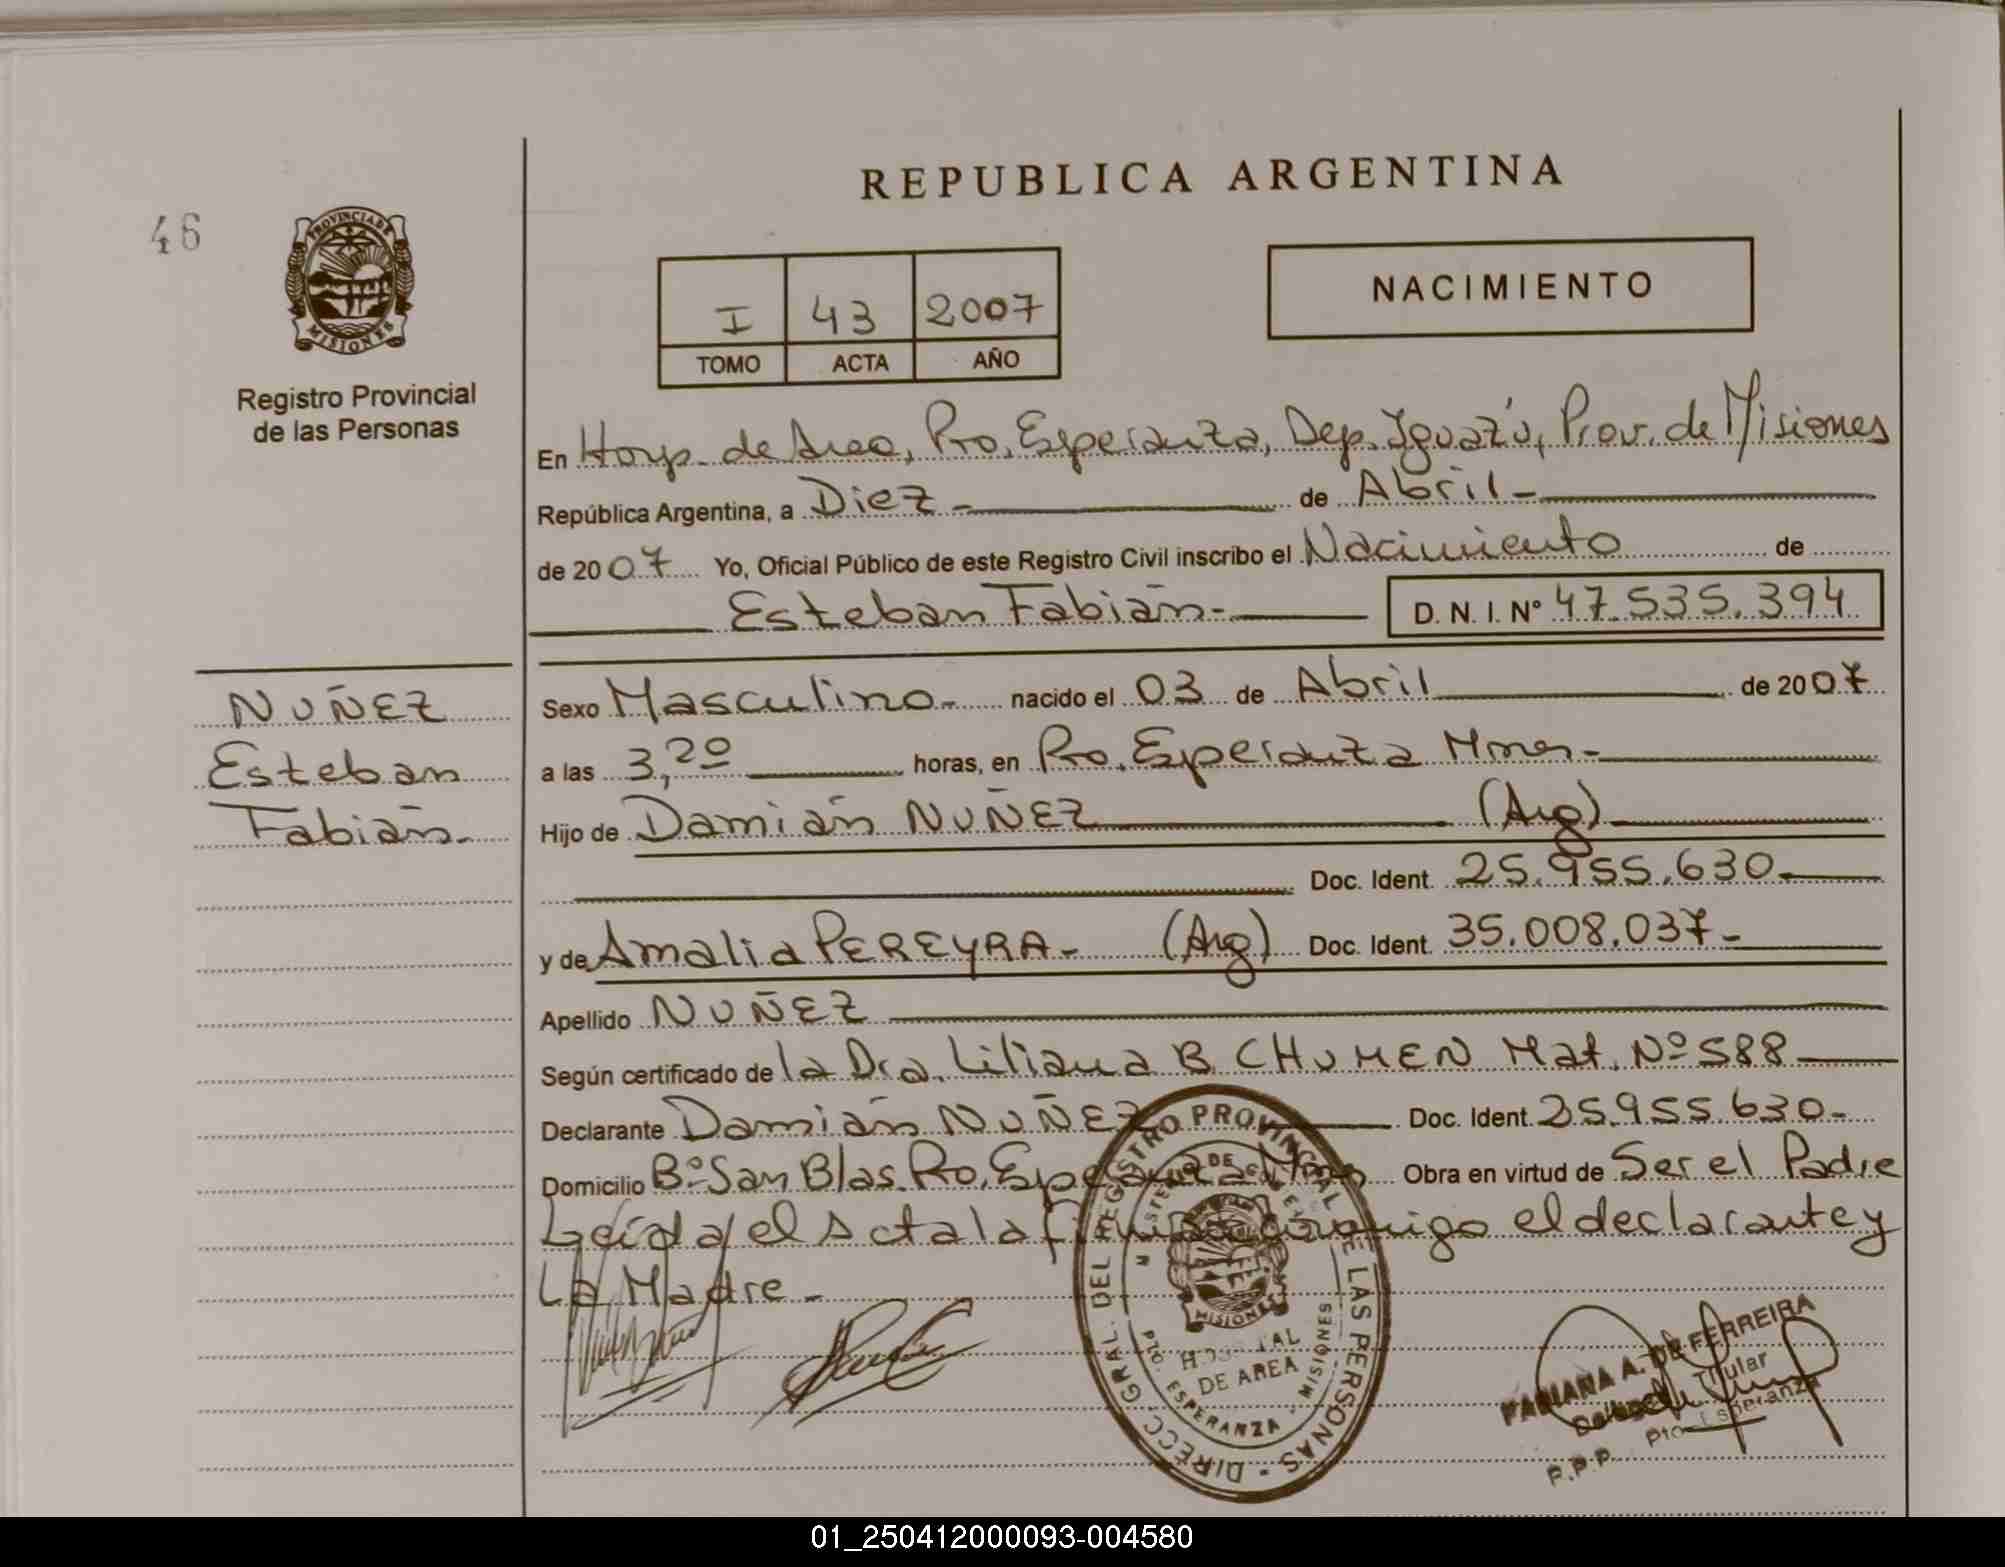 REPUBLICA ARGENTINA
46
PROVINCIA DE
MISIONES
Registro Provincial
de las Personas
I 43 2007
TOMO ACTA AÑO
NACIMIENTO
En Hosp. de Area, Pto. Esperanza, Dep. Iguazú, Prov. de Misiones
República Argentina, a Diez - de Abril -
de 2007 Yo, Oficial Público de este Registro Civil inscribo el Nacimiento de
Esteban Fabián - D. N. I. Nº 47.535.394
NUÑEZ
Esteban
Fabián -
Sexo Masculino - nacido el 03 de Abril de 2007
a las 3,20 horas, en Pto. Esperanza Mnes -
Hijo de Damián NUÑEZ (Arg)
Doc. Ident. 25.955.630 -
y de Amalia PEREYRA - (Arg) Doc. Ident. 35.008.037 -
Apellido NUÑEZ
Según certificado de la Dra. Liliana B. CHUMEN Mat. Nº 588
Declarante Damián NUÑEZ Doc. Ident. 25.955.630 -
Domicilio Bº San Blas. Pto. Esperanza Mnes Obra en virtud de Ser el Padre
Leída el Acta la conmigo el declarante y
La Madre -
DIRECC. GRAL. DEL REGISTRO PROVINCIAL DE LAS PERSONAS
MISIONES
HOSPITAL
DE AREA
PTO. ESPERANZA - MISIONES
FABIANA A. DE FERREIRA
Titular
Pto Esperanza
R.P.P.
01_250412000093-004580